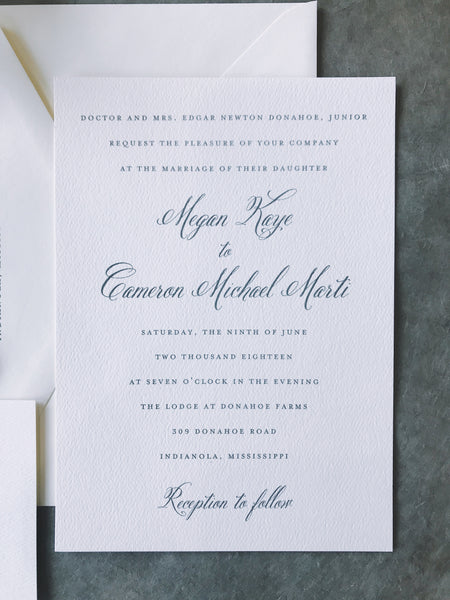 DOCTOR AND MRS. EDGAR NEWTON DONAHOE, JUNIOR
REQUEST THE PLEASURE OF YOUR COMPANY
AT THE MARRIAGE OF THEIR DAUGHTER
Megan Kaye
to
Cameron Michael Marti
SATURDAY, THE NINTH OF JUNE
TWO THOUSAND EIGHTEEN
AT SEVEN O'CLOCK IN THE EVENING
THE LODGE AT DONAHOE FARMS
309 DONAHOE ROAD
INDIANOLA, MISSISSIPPI
Reception to follow